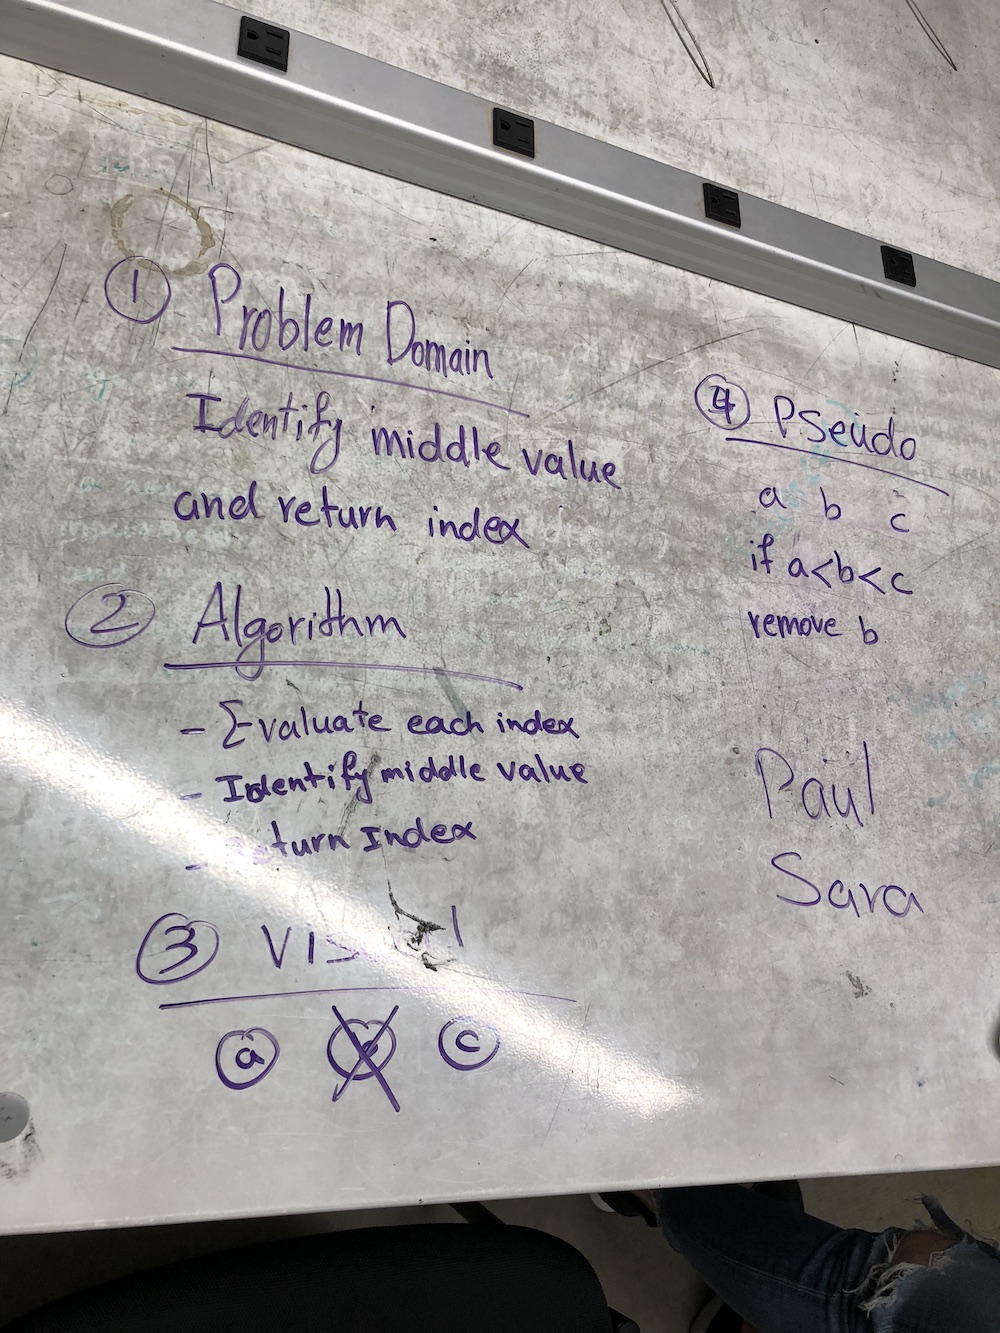 ① Problem Domain
Identify middle value
and return index
② Algorithm
- Evaluate each index
- Identify middle value
- Return Index
③ Visual
a b c
④ Pseudo
a b c
if a<b<c
remove b
Paul
Sara